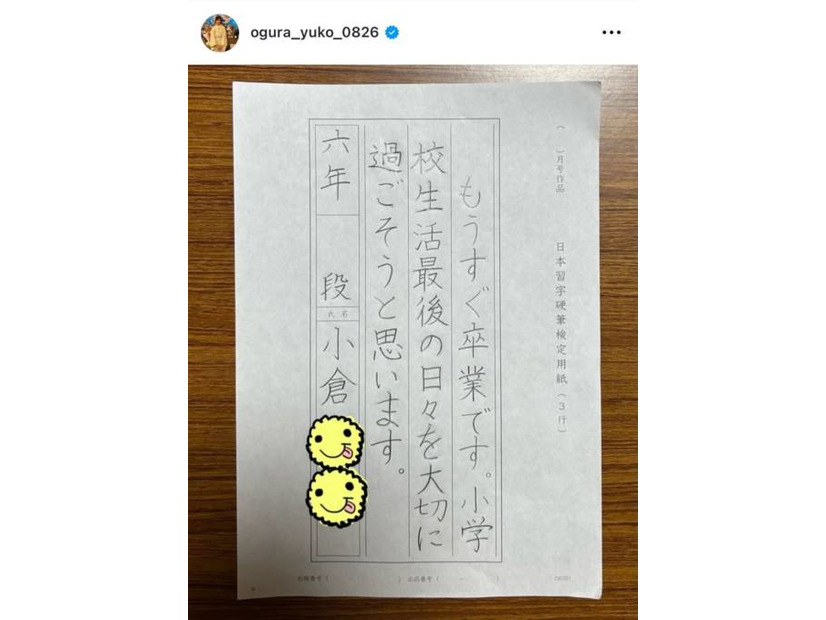 ogura_yuko_0826
( )月号作品
日本習字硬筆検定用紙(3行)
もうすぐ卒業です。小学
校生活最後の日々を大切に
過ごそうと思います。
六年
段
氏名
小倉
会員番号( )
出品番号( )